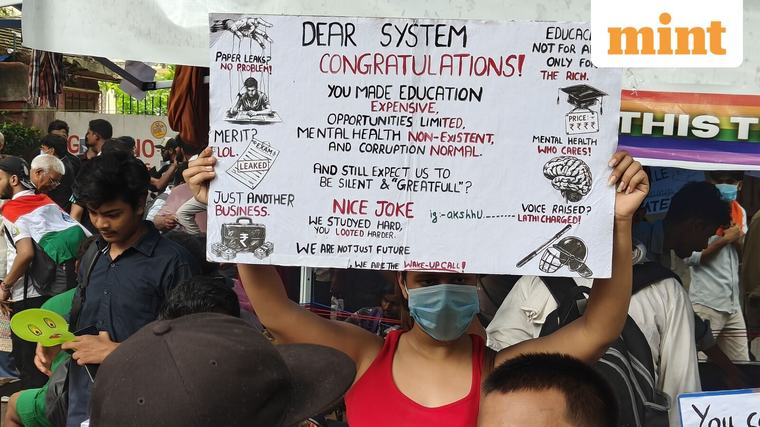 mint
DEAR SYSTEM
CONGRATULATIONS!
YOU MADE EDUCATION
EXPENSIVE,
OPPORTUNITIES LIMITED,
MENTAL HEALTH NON-EXISTENT,
AND CORRUPTION NORMAL.
AND STILL EXPECT US TO
BE SILENT & "GREATFULL"?
NICE JOKE
WE STUDIED HARD,
YOU LOOTED HARDER.
WE ARE NOT JUST FUTURE
WE ARE THE WAKE-UP CALL!
PAPER LEAKS?
NO PROBLEM!
MERIT?
LOL.
EXAM
LEAKED
JUST ANOTHER
BUSINESS.
₹
ig:-akshhu.
NOT FOR
ONLY FOR
THE RICH.
PRICE:
₹₹₹
MENTAL HEALTH
WHO CARES!
VOICE RAISED?
LATHI CHARGED!
THIS
You